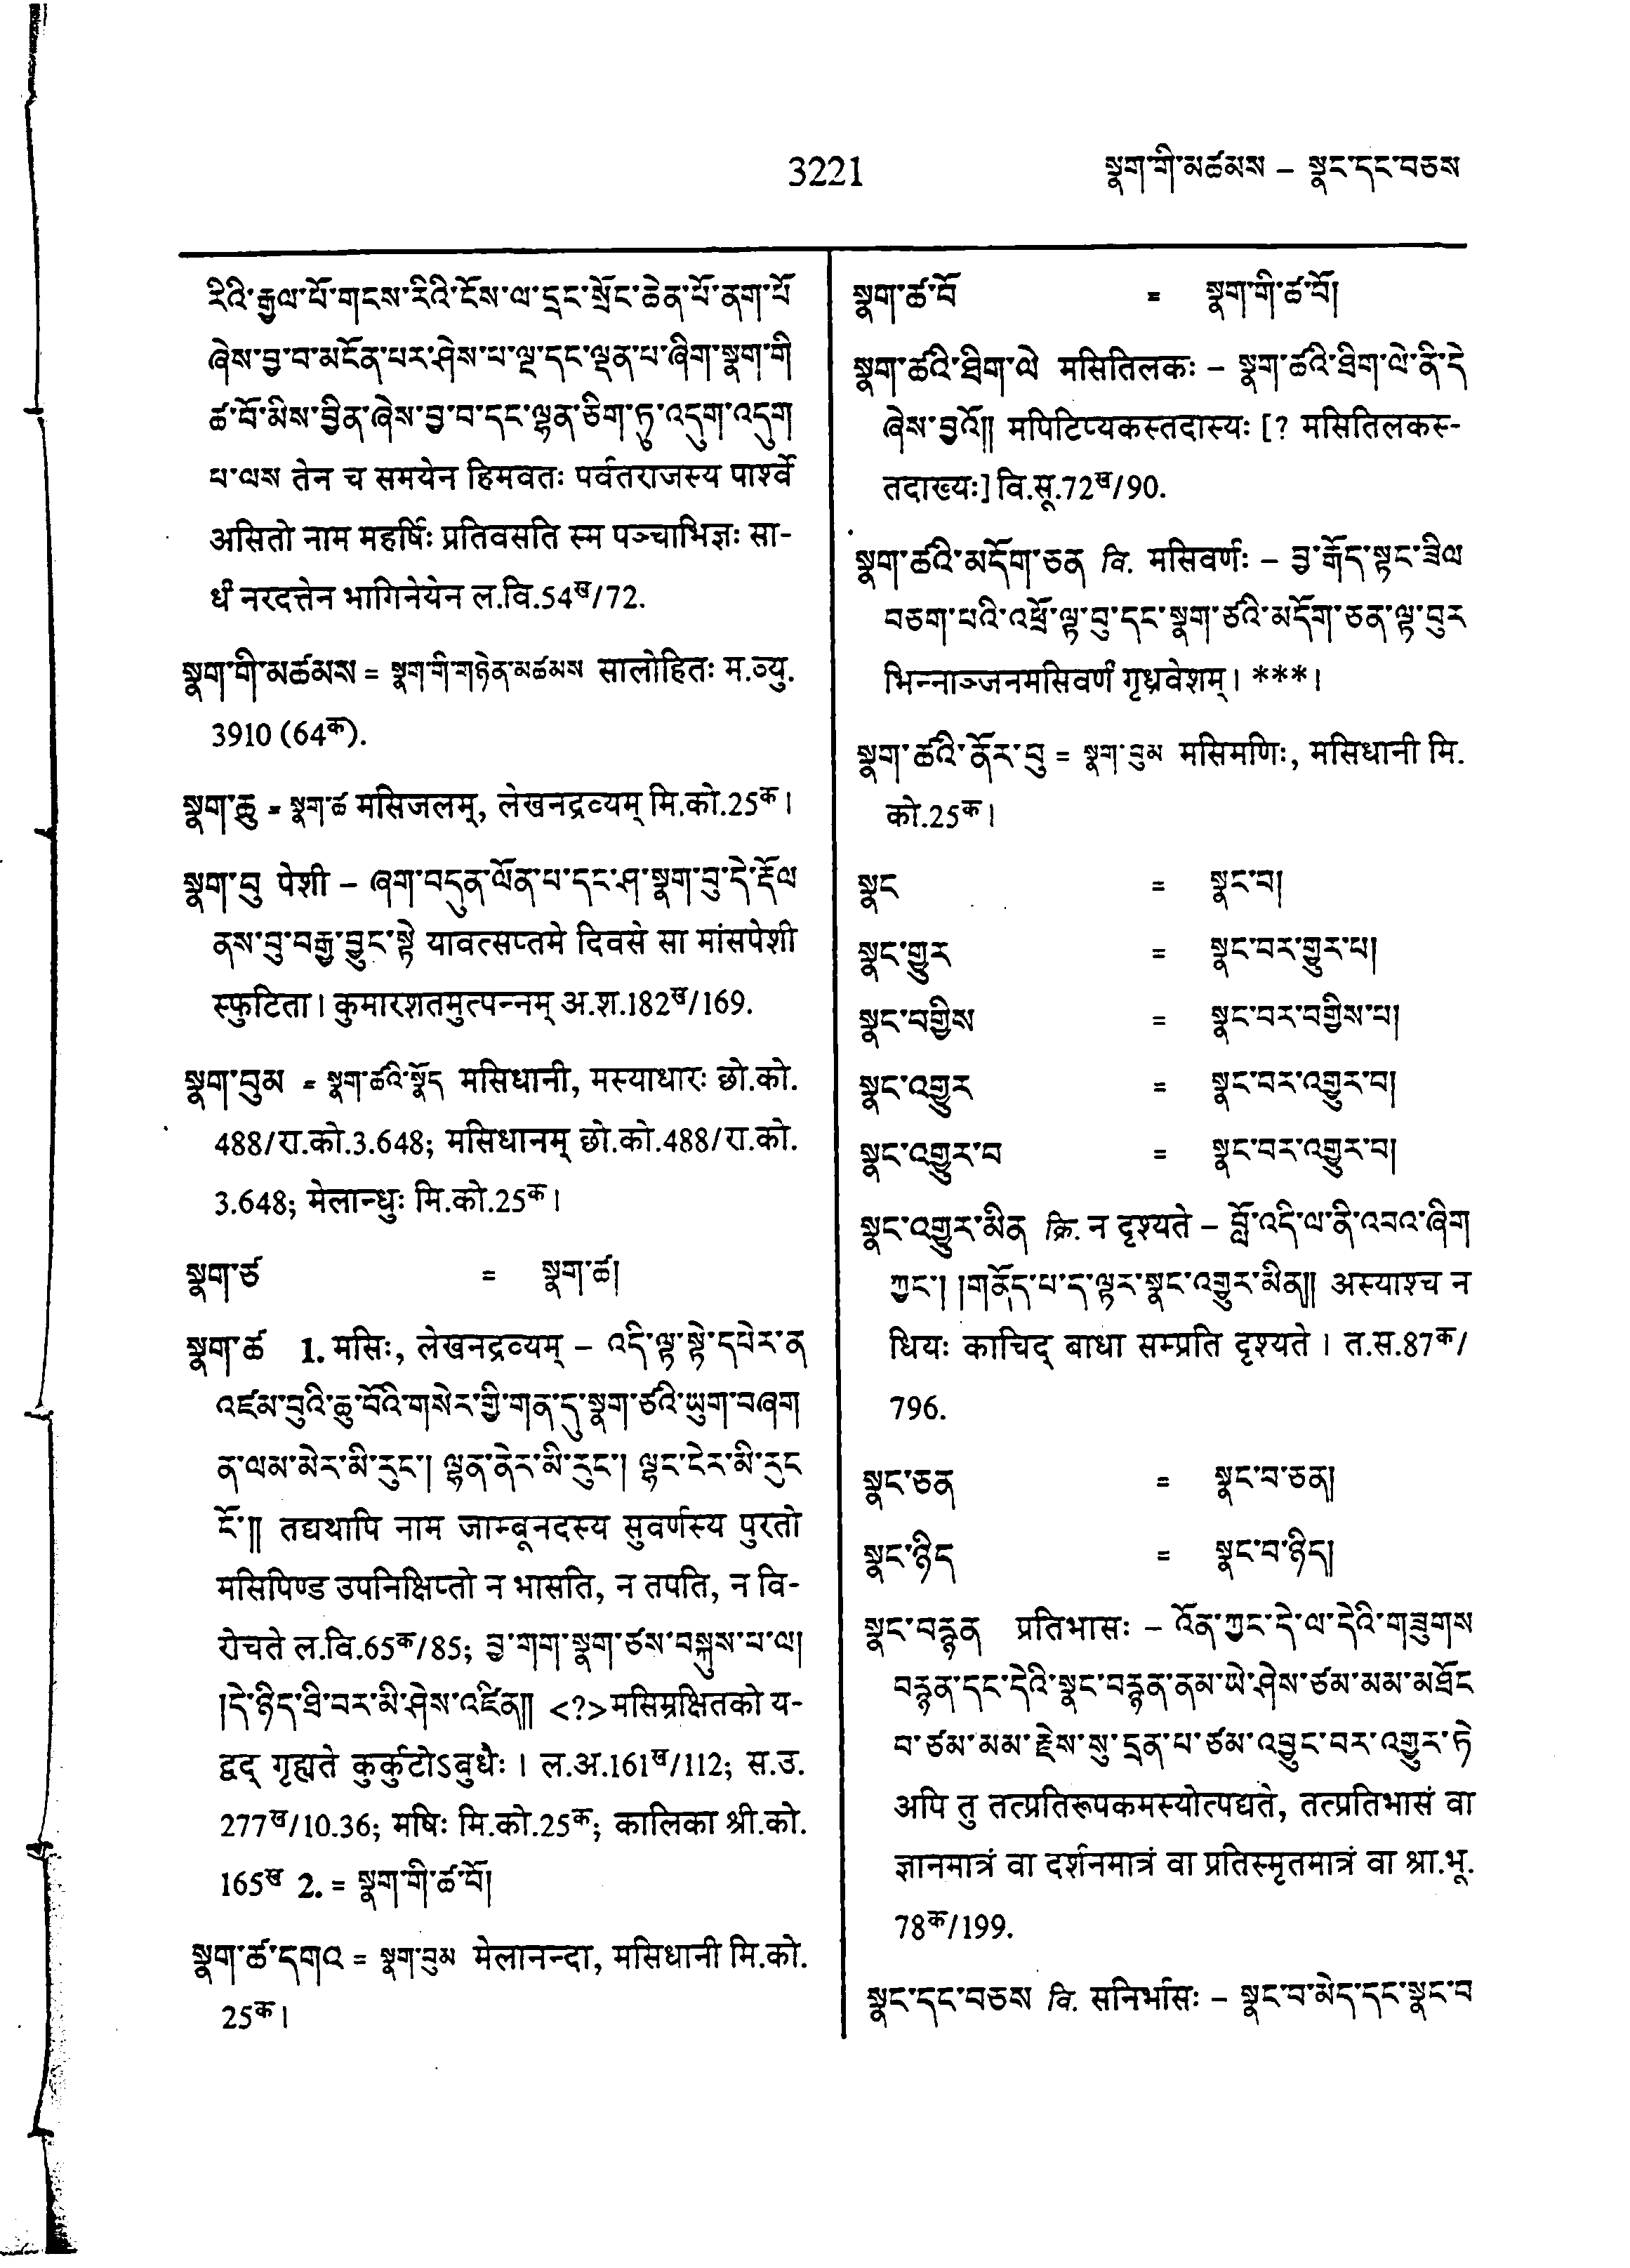 3221
སྣག་གི་མཚམས – སྣང་དང་བཅས
རིའི་རྒྱལ་པོ་གངས་རིའི་ངོས་ལ་དྲང་སྲོང་ཆེན་པོ་ནག་པོ
ཞེས་བྱ་བ་མངོན་པར་ཤེས་པ་ལྔ་དང་ལྡན་པ་ཞིག་སྣག་གི
ཚ་བོ་མིས་བྱིན་ཞེས་བྱ་བ་དང་ལྷན་ཅིག་ཏུ་འདུག་འདུག
པ་ལས तेन च समयेन हिमवतः पर्वतराजस्य पार्श्वे
असितो नाम महर्षिः प्रतिवसति स्म पञ्चाभिज्ञः सा-
र्धं नरदत्तेन भागिनेयेन ल.वि.54ख/72.
སྣག་གི་མཚམས = སྣག་གི་གཉེན་མཚམས सालोहितः म.व्यु.
3910 (64क).
སྣག་ཆུ = སྣག་ཚ मसिजलम्, लेखनद्रव्यम् मि.को.25क।
སྣག་བུ पेशी – ཞག་བདུན་ལོན་པ་དང་ཤ་སྣག་བུ་དེ་རྡོལ
ནས་བུ་བརྒྱ་བྱུང་སྟེ यावत्सप्तमे दिवसे सा मांसपेशी
स्फुटिता। कुमारशतमुत्पन्नम् अ.श.182ख/169.
སྣག་བུམ = སྣག་ཚའི་སྣོད मसिधानी, मस्याधारः छो.को.
488/रा.को.3.648; मसिधानम् छो.को.488/रा.को.
3.648; मेलान्धुः मि.को.25क।
སྣག་ཙ = སྣག་ཚ།
སྣག་ཚ 1. मसिः, लेखनद्रव्यम् – འདི་ལྟ་སྟེ་དཔེར་ན
འཛམ་བུའི་ཆུ་བོའི་གསེར་གྱི་གན་དུ་སྣག་ཙའི་ཡུག་བཞག
ན་ལམ་མེར་མི་རུང་། ལྷན་ནེར་མི་རུང་། ལྷང་ངེར་མི་རུང
ངོ་༎ तद्यथापि नाम जाम्बूनदस्य सुवर्णस्य पुरतो
मसिपिण्ड उपनिक्षिप्तो न भासति, न तपति, न वि-
रोचते ल.वि.65क/85; བྱ་གག་སྣག་ཙས་བསྐུས་པ་ལ།
།དེ་ཉིད་ཤི་བར་མི་ཤེས་འཛིན༎ <?>मसिम्रक्षितको य-
द्वद् गृह्यते कुर्कुटोऽबुधैः । ल.अ.161ख/112; स.उ.
277ख/10.36; मषिः मि.को.25क; कालिका श्री.को.
165ख 2. = སྣག་གི་ཚ་བོ།
སྣག་ཚ་དགའ = སྣག་བུམ मेलानन्दा, मसिधानी मि.को.
25क।
སྣག་ཚ་བོ = སྣག་གི་ཚ་བོ།
སྣག་ཚའི་ཐིག་ལེ मसितिलकः – སྣག་ཚའི་ཐིག་ལེ་ནི་དེ
ཞེས་བྱའོ༎ मपिटिप्यकस्तदास्यः [? मसितिलकस्-
तदाख्यः] वि.सू.72ख/90.
སྣག་ཚའི་མདོག་ཅན वि. मसिवर्णः – བྱ་རྒོད་སྟང་ཟིལ
བཅག་པའི་འཕྲོ་ལྟ་བུ་དང་སྣག་ཙའི་མདོག་ཅན་ལྟ་བུར
भिन्नाञ्जनमसिवर्णं गृध्रवेशम्। ***।
སྣག་ཚའི་ནོར་བུ = སྣག་བུམ मसिमणिः, मसिधानी मि.
को.25क।
སྣང = སྣང་བ།
སྣང་གྱུར = སྣང་བར་གྱུར་པ།
སྣང་བགྱིས = སྣང་བར་བགྱིས་པ།
སྣང་འགྱུར = སྣང་བར་འགྱུར་བ།
སྣང་འགྱུར་བ = སྣང་བར་འགྱུར་བ།
སྣང་འགྱུར་མིན क्रि. न दृश्यते – བློ་འདི་ལ་ནི་འབའ་ཞིག
ཀྱང་། །གནོད་པ་ད་ལྟར་སྣང་འགྱུར་མིན༎ अस्याश्च न
धियः काचिद् बाधा सम्प्रति दृश्यते । त.स.87क/
796.
སྣང་ཅན = སྣང་བ་ཅན།
སྣང་ཉིད = སྣང་བ་ཉིད།
སྣང་བརྙན प्रतिभासः – འོན་ཀྱང་དེ་ལ་དེའི་གཟུགས
བརྙན་དང་དེའི་སྣང་བརྙན་ནམ་ཡེ་ཤེས་ཙམ་མམ་མཐོང
བ་ཙམ་མམ་རྗེས་སུ་དྲན་པ་ཙམ་འབྱུང་བར་འགྱུར་ཏེ
अपि तु तत्प्रतिरूपकमस्योत्पद्यते, तत्प्रतिभासं वा
ज्ञानमात्रं वा दर्शनमात्रं वा प्रतिस्मृतमात्रं वा श्रा.भू.
78क/199.
སྣང་དང་བཅས वि. सनिर्भासः – སྣང་བ་མེད་དང་སྣང་བ